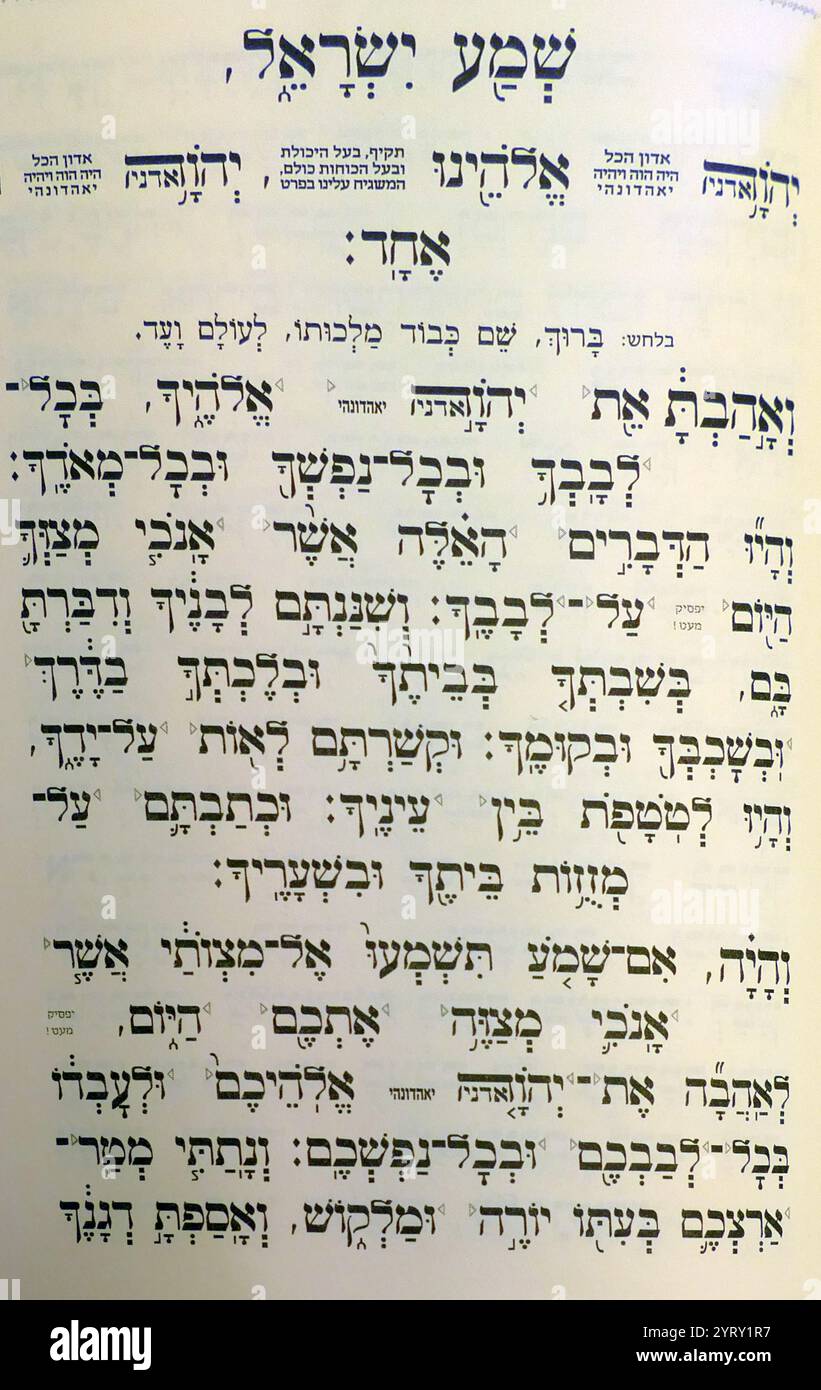 שְׁמַ֖ע יִשְׂרָאֵ֑ל,
יְהֹוָ֥ה אדני אדון הכל היה הוה ויהיה יאהדונהי אֱלֹהֵ֖ינוּ תקיף, בעל היכולת ובעל הכוחות כולם, המשגיח עלינו בפרט, יְהֹוָ֥ה אדני אדון הכל היה הוה ויהיה יאהדונהי
אֶחָֽד׃
בלחש: בָּרוּךְ, שֵׁם כְּבוֹד מַלְכוּתוֹ, לְעוֹלָם וָעֶד.
וְאָ֣הַבְתָּ֔ אֵ֖ת יְהֹוָ֣ה אדני יאהדונהי אֱלֹהֶ֑יךָ, בְּכׇל־
לְבָֽבְךָ֥ וּבְכׇל־נַפְשְׁךָ֖ וּבְכׇל־מְאֹדֶֽךָ׃
וְהָי֞וּ הַדְּבָרִ֣ים הָאֵ֗לֶּה אֲשֶׁ֨ר אָֽנֹכִ֧י מְצַוְּךָ֛
הַיּ֖וֹם יפסיק מעט! עַל־לְבָבֶֽךָ׃ וְשִׁנַּנְתָּ֣ם לְבָנֶ֔יךָ וְדִבַּרְתָּ֖
בָּ֑ם, בְּשִׁבְתְּךָ֤ בְּבֵיתֶ֙ךָ֙ וּבְלֶכְתְּךָ֣ בַדֶּ֔רֶךְ
וּֽבְשׇׁכְבְּךָ֖ וּבְקוּמֶֽךָ׃ וּקְשַׁרְתָּ֥ם לְא֖וֹת עַל־יָדֶ֑ךָ,
וְהָי֥וּ לְטֹטָפֹ֖ת בֵּ֥ין עֵינֶֽיךָ׃ וּכְתַבְתָּ֛ם עַל־
מְזֻז֥וֹת בֵּיתֶ֖ךָ וּבִשְׁעָרֶֽיךָ׃
וְהָיָ֗ה, אִם־שָׁמֹ֤עַ תִּשְׁמְעוּ֙ אֶל־מִצְוֺתַ֔י אֲשֶׁ֧ר
אָֽנֹכִ֛י מְצַוֶּ֥ה אֶתְכֶ֖ם הַיּ֑וֹם, יפסיק מעט!
לְאַהֲבָ֞ה אֶת־יְהֹוָ֤ה אדני יאהדונהי אֱלֹֽהֵיכֶם֙ וּלְעׇבְד֔וֹ
בְּכׇל־לְבַבְכֶ֖ם וּבְכׇל־נַפְשְׁכֶֽם׃ וְנָתַתִּ֧י מְטַֽר־
אַרְצְכֶ֛ם בְּעִתּ֖וֹ יוֹרֶ֣ה וּמַלְק֑וֹשׁ, וְאָסַפְתָּ֣ דְגָנֶ֔ךָ
alamy
Image ID: 2YRY1R7
www.alamy.com